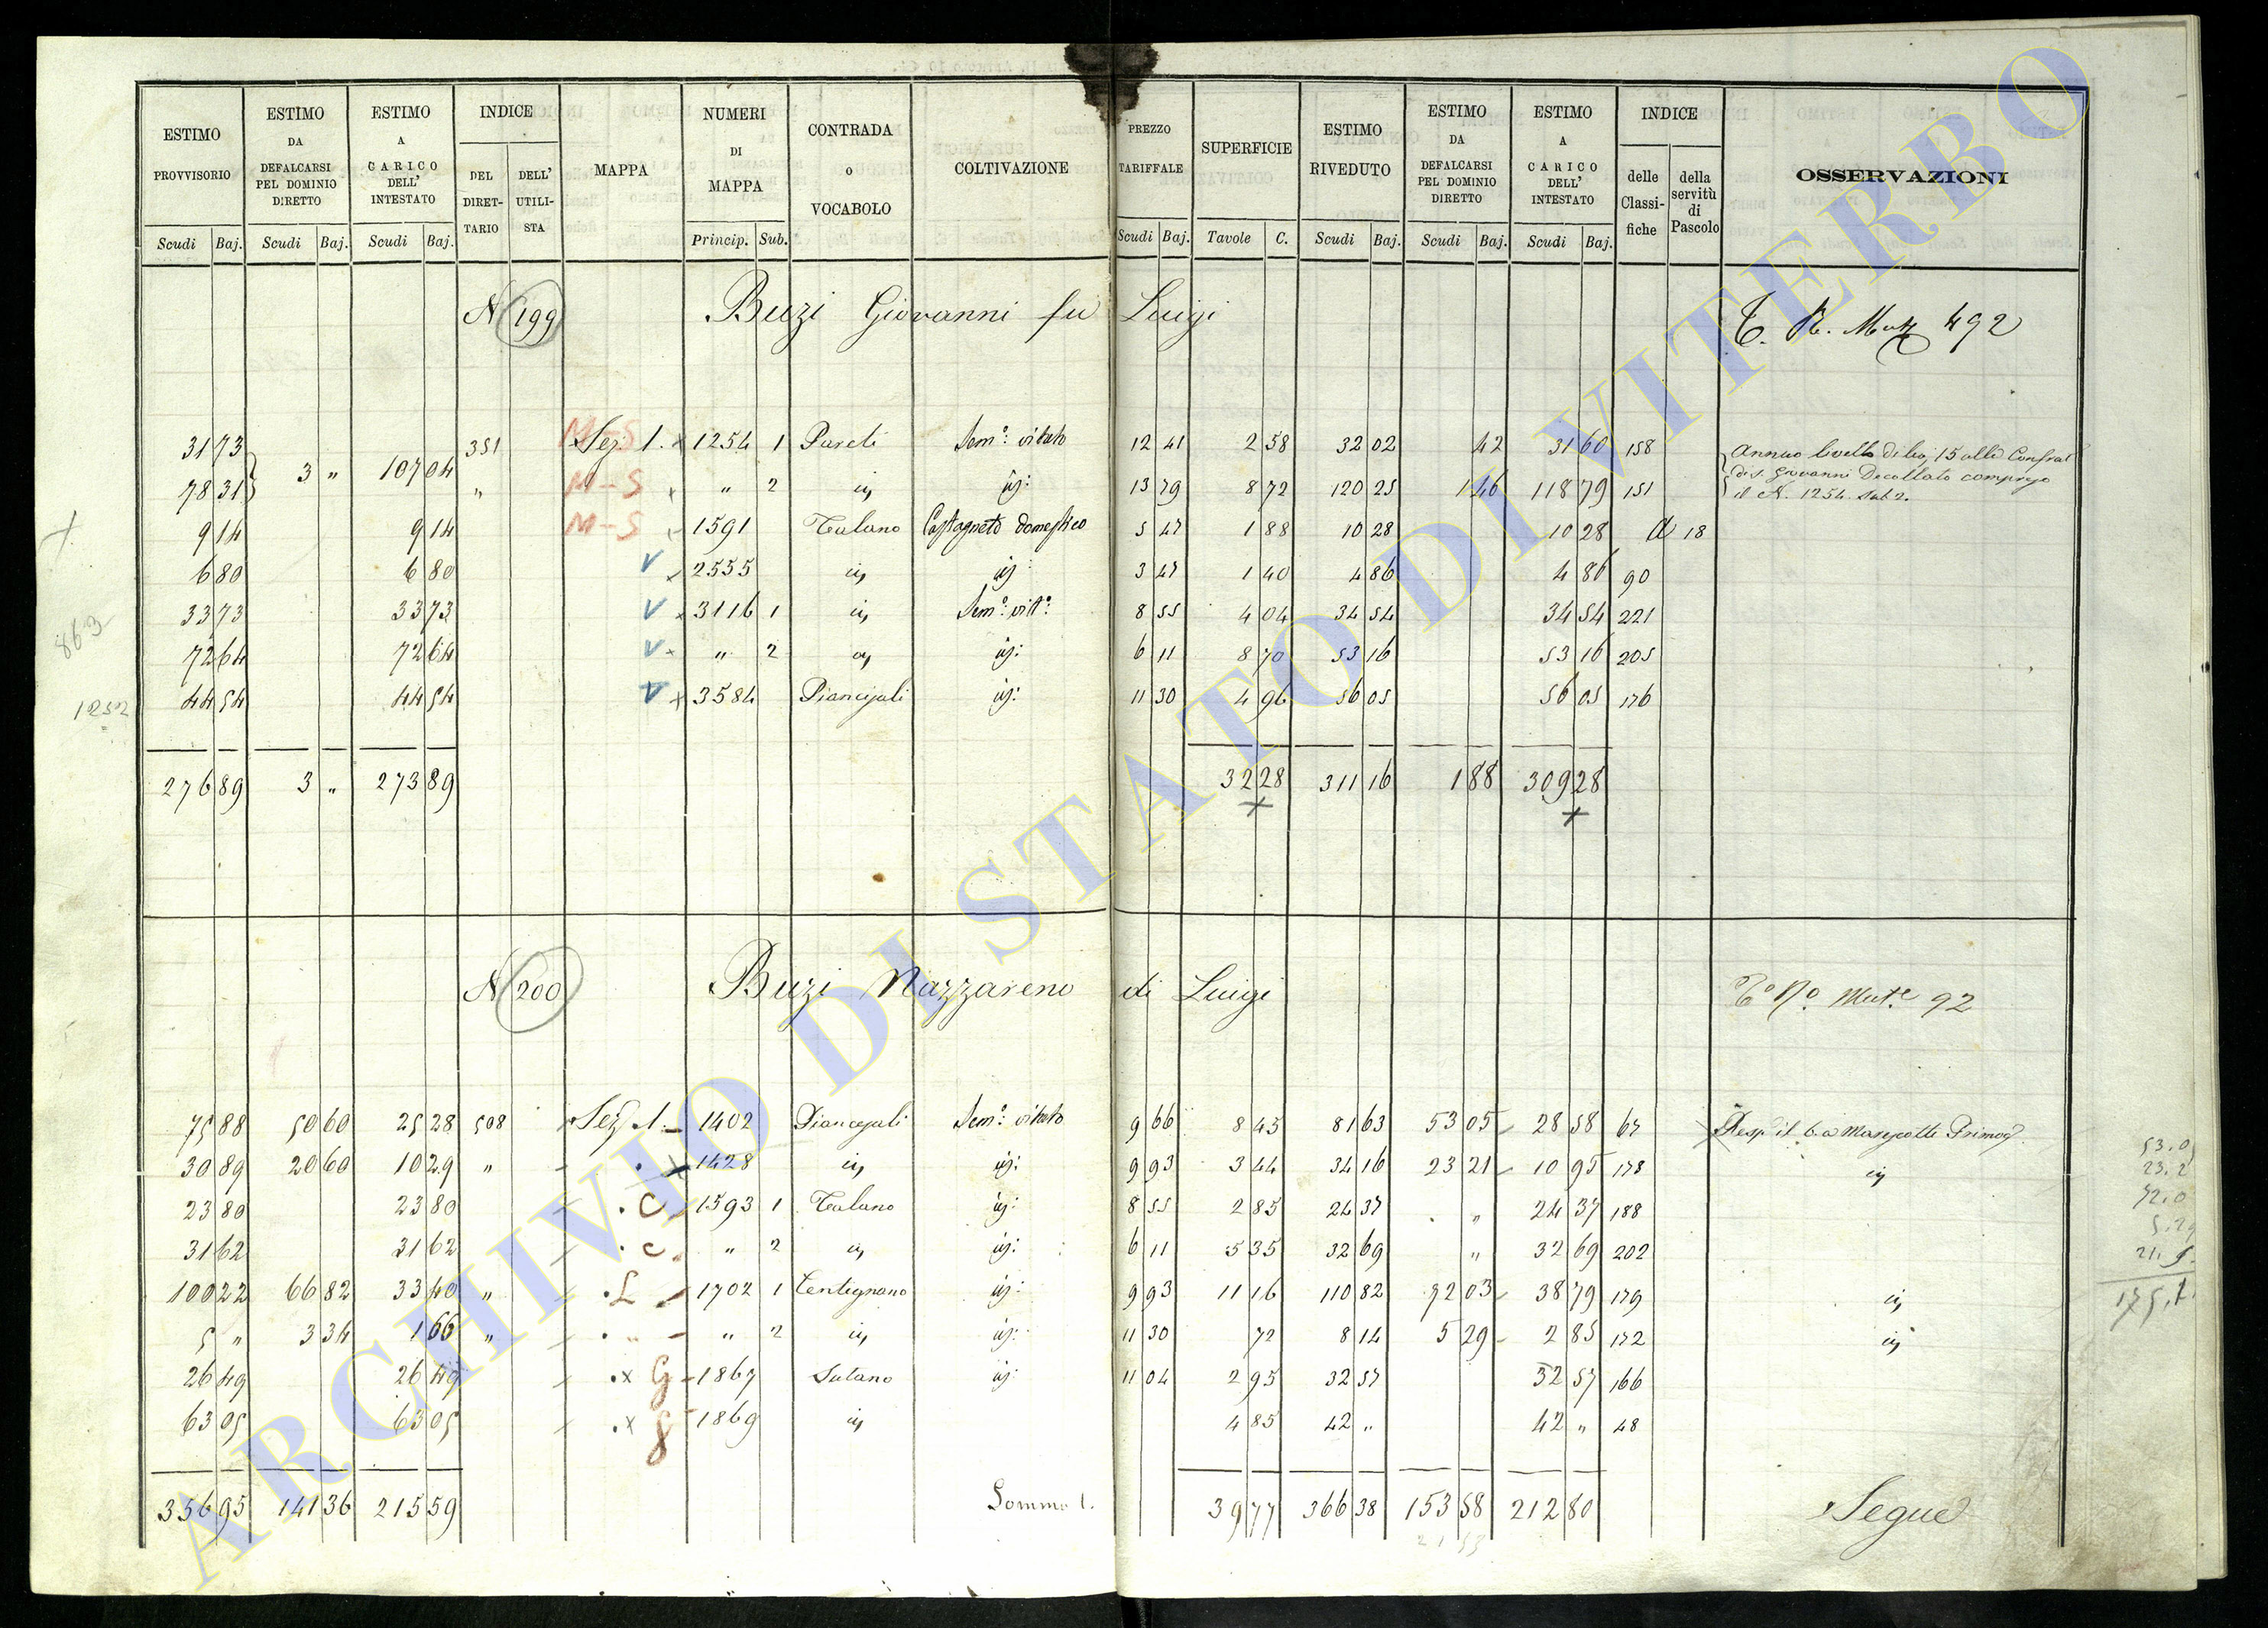 ESTIMO PROVVISORIO | ESTIMO DA DEFALCARSI PEL DOMINIO DIRETTO | ESTIMO A CARICO DELL' INTESTATO | INDICE | MAPPA | NUMERI DI MAPPA | CONTRADA O VOCABOLO | COLTIVAZIONE | PREZZO TARIFFALE | SUPERFICIE | ESTIMO RIVEDUTO | ESTIMO DA DEFALCARSI PEL DOMINIO DIRETTO | ESTIMO A CARICO DELL' INTESTATO | INDICE | OSSERVAZIONI
DEL DIRETTARIO | DELL' UTILISTA | delle Classifiche | della servitù di Pascolo
Scudi Baj. | Scudi Baj. | Scudi Baj. | Princip. Sub. | Scudi Baj. | Tavole C. | Scudi Baj. | Scudi Baj. | Scudi Baj.
N 199 Buzi Giovanni fu Luigi 492
31 73 | 3 " | 107 04 | 351 | M-S Sez. 1. x | 1254 1 | Pareti | Sem.o vitato | 12 41 | 2 58 | 32 02 | 42 | 31 60 | 158 | Annuo livello di 15 alla Confrat
78 31 | " | M-S x | " 2 | 13 79 | 8 72 | 120 25 | 1 46 | 118 79 | 151 | di S. Giovanni Decollato compreso
il N. 1254 sub 2.
9 14 | 9 14 | M-S | 1591 | Tulano | Castagneto domestico | 5 47 | 1 88 | 10 28 | 10 28 | 18
6 80 | 6 80 | V x | 2555 | 3 47 | 1 40 | 4 86 | 4 86 | 90
33 73 | 33 73 | V x | 3116 1 | Sem.o vit.o | 8 55 | 4 04 | 34 54 | 34 54 | 221
863
72 64 | 72 64 | V x | " 2 | 6 11 | 8 70 | 53 16 | 53 16 | 205
1252
44 54 | 44 54 | V x | 3584 | Piancajali | 11 30 | 4 96 | 56 05 | 56 05 | 176
276 89 | 3 " | 273 89 | 32 28 | 311 16 | 1 88 | 309 28
N 200 Buzi Nazzareno di Luigi 92
75 88 | 50 60 | 25 28 | 508 | Sez. 1. | 1402 | Piancajali | Sem.o vitato | 9 66 | 8 45 | 81 63 | 53 05 | 28 58 | 67
30 89 | 20 60 | 10 29 | " | 1428 | 9 93 | 3 44 | 34 16 | 23 21 | 10 95 | 178
23 80 | 23 80 | C | 1593 1 | Tulano | 8 55 | 2 85 | 24 37 | " | 24 37 | 188
31 62 | 31 62 | c | " 2 | 6 11 | 5 35 | 32 69 | " | 32 69 | 202
100 22 | 66 82 | 33 40 | " | L | 1702 1 | Centignano | 9 93 | 11 16 | 110 82 | 72 03 | 38 79 | 179
5 " | 3 34 | 1 66 | " | " 2 | 11 30 | 72 | 8 14 | 5 29 | 2 85 | 172
26 49 | 26 49 | x G | 1867 | Sutano | 11 04 | 2 95 | 32 57 | 32 57 | 166
63 05 | 63 05 | x g | 1869 | 4 85 | 42 " | 42 " | 48
356 95 | 141 36 | 215 59 | Somma | 39 77 | 366 38 | 153 58 | 212 80 | Segue
ARCHIVIO DI STATO DI VITERBO